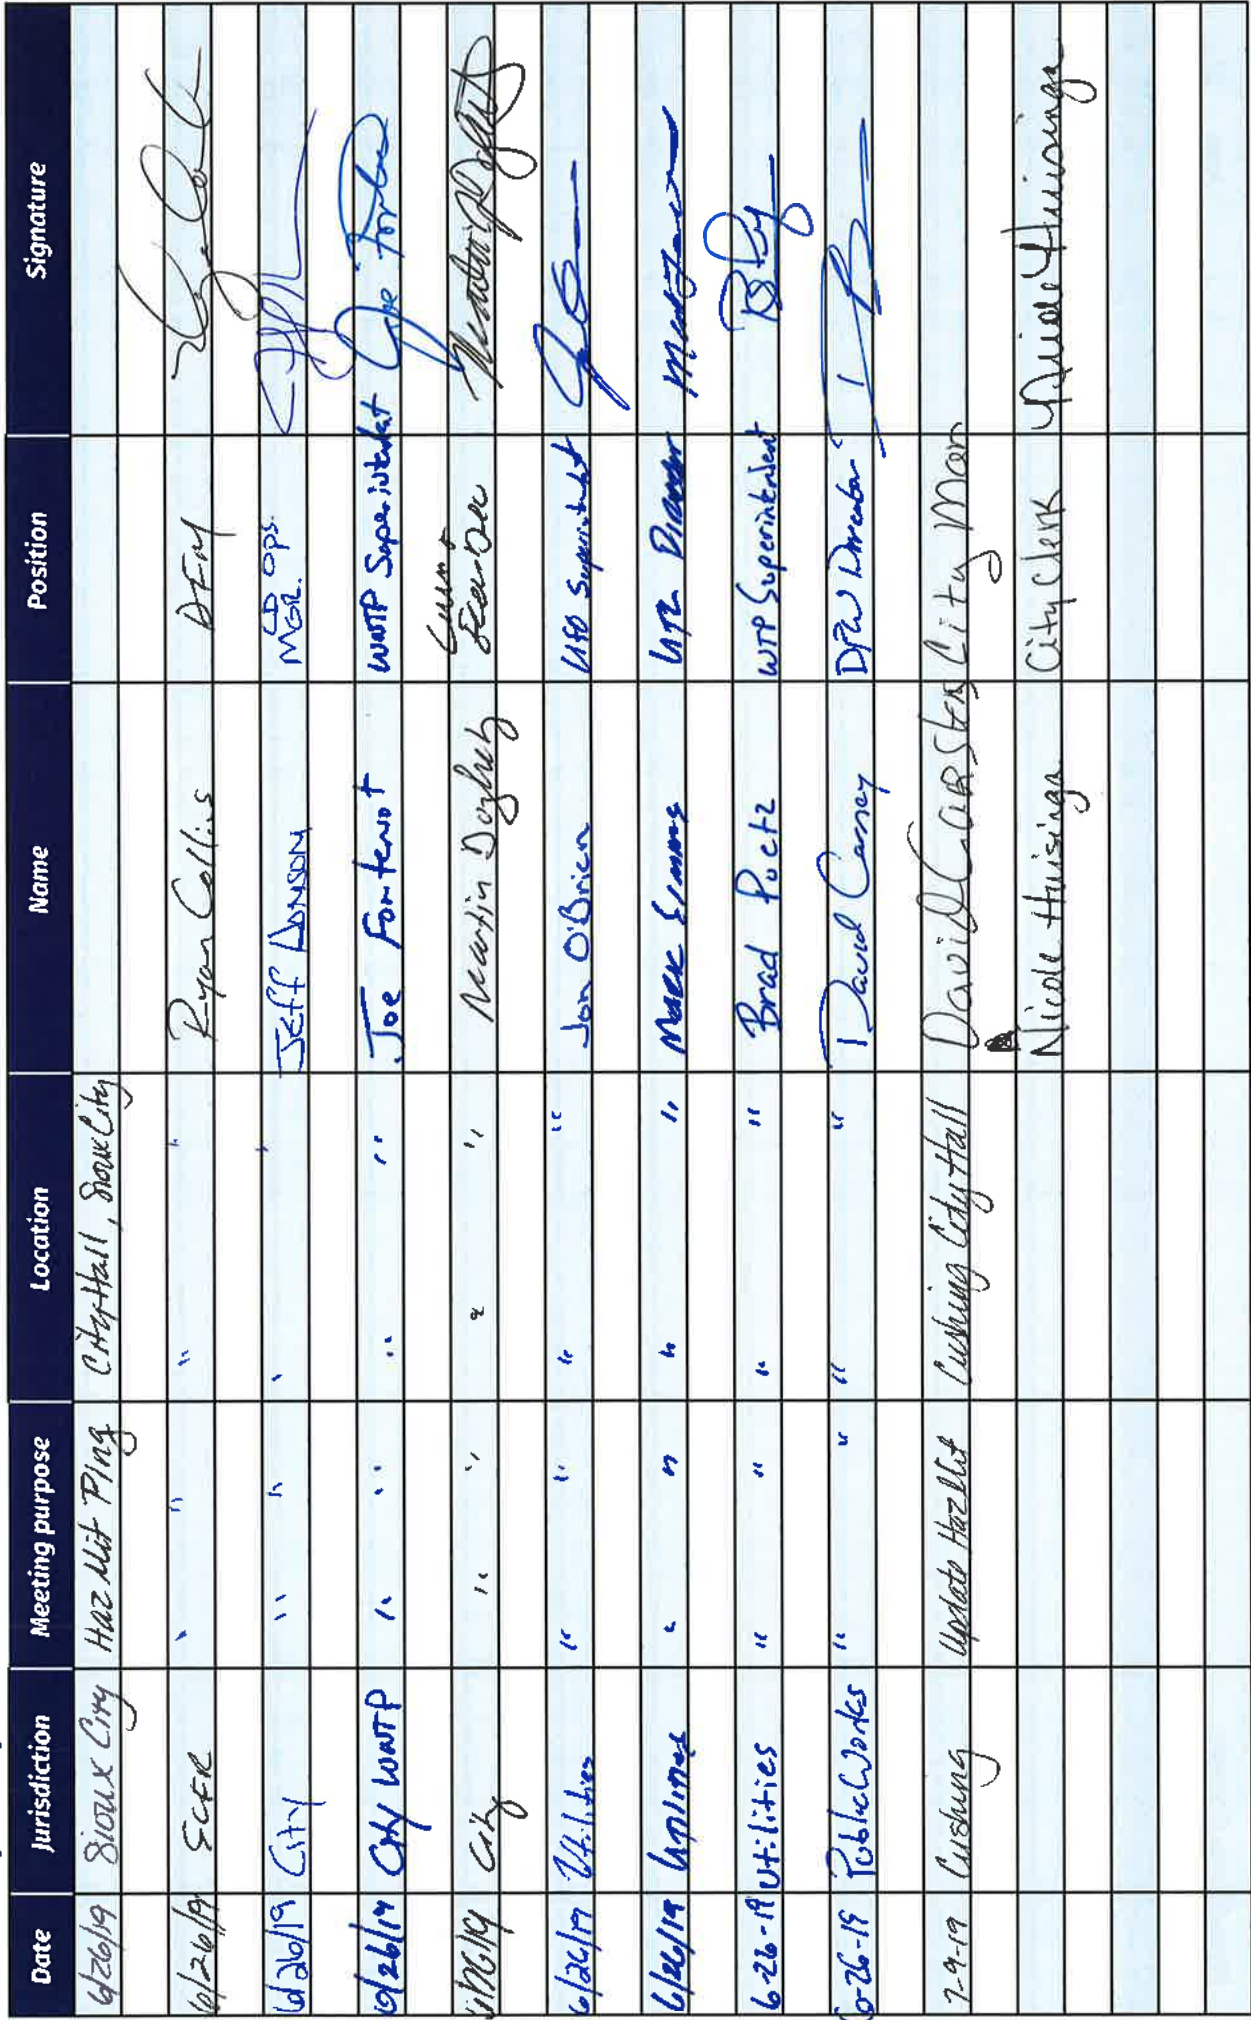 Date Jurisdiction Meeting purpose Location Name Position Signature
6/26/19 Sioux City Haz Mit Plng City Hall, Sioux City
6/26/19 SCFR " " " " Ryan Collins DFM
6/26/19 City " " " " Jeff Hanson CD Ops. MGR.
6/26/19 City WWTP " " " " Joe Fontenot WWTP Superintendat Joe
6/26/19 City " " " " Martin Dougherty
6/26/19 Utilities " " " " Jon O'Brien
6/26/19 Utilities " " " " Mark Simms
6-26-19 Utilities " " " " Brad Puetz WTP Superintendent
6-26-19 Public Works " " " " David Carney DPW Director
7-9-19 Cushing Update HazMit Cushing City Hall David Carsten City Man
Nicole Huisinga City Clerk Nicole Huisinga